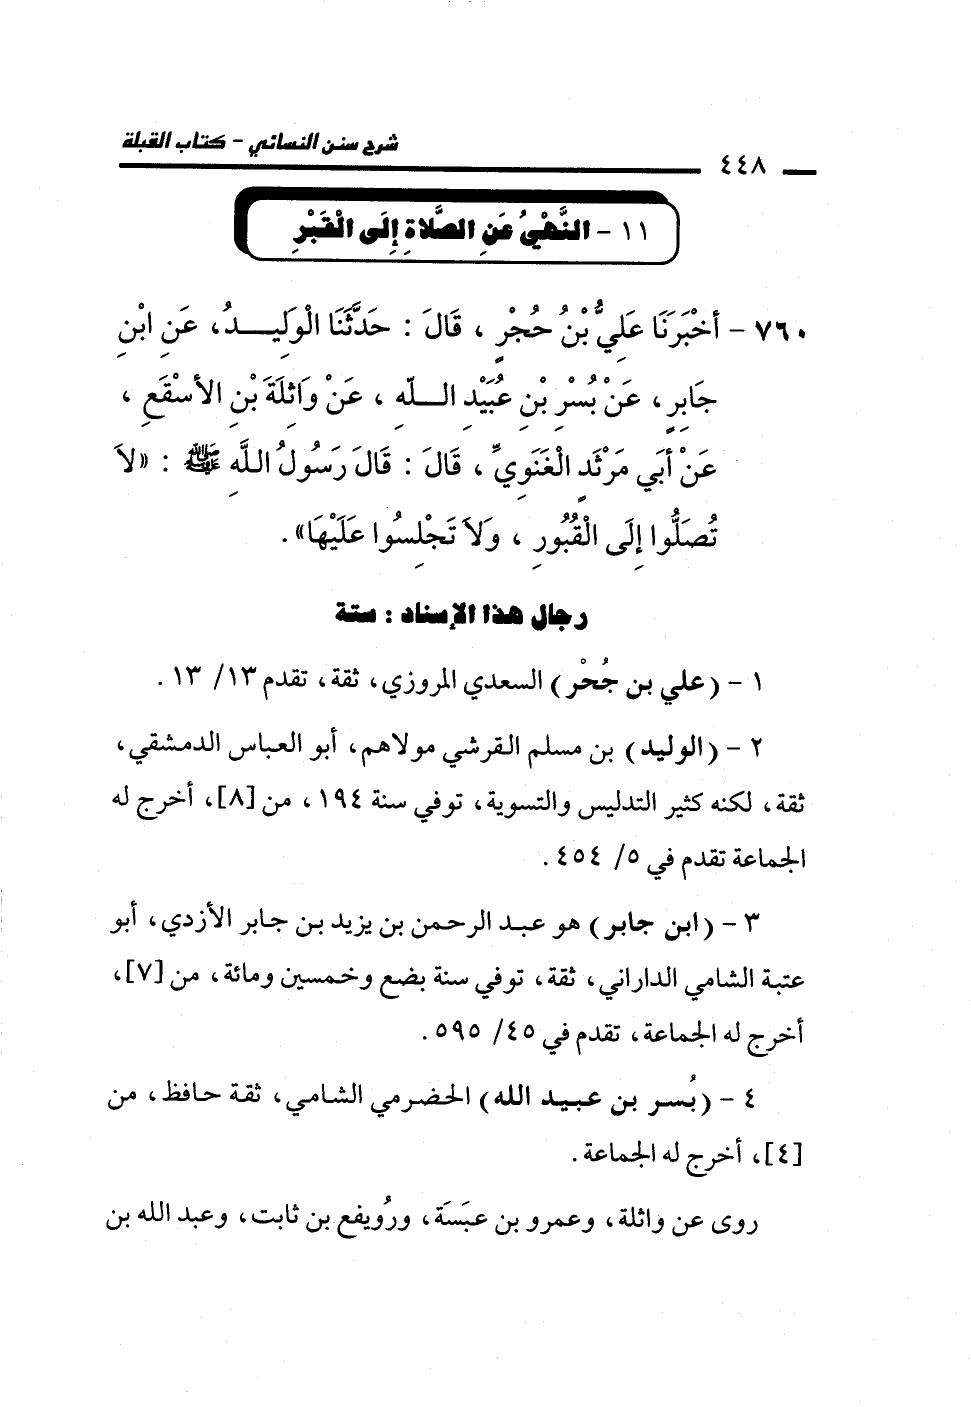 شرح سنن النسائي - كتاب القبلة
٤٤٨
١١ - النَّهْيُ عَنِ الصَّلَاةِ إِلَى الْقَبْرِ
٧٦٠ - أَخْبَرَنَا عَلِيُّ بْنُ حُجْرٍ ، قَالَ : حَدَّثَنَا الْوَلِيـدُ، عَنِ ابْنِ
جَابِرٍ ، عَنْ بُسْرِ بْنِ عُبَيْدِ اللّهِ ، عَنْ وَاثِلَةَ بْنِ الأَسْقَعِ ،
عَنْ أَبِي مَرْثَدٍ الْغَنَوِيِّ ، قَالَ : قَالَ رَسُولُ اللَّهِ ﷺ : «لاَ
تُصَلُّوا إِلَى الْقُبُورِ ، وَلاَ تَجْلِسُوا عَلَيْهَا» .
رجال هذا الإسناد : ستة
١ - (علي بن حُجْر) السعدي المروزي، ثقة، تقدم ١٣/ ١٣ .
٢ - (الوليد) بن مسلم القرشي مولاهم، أبو العباس الدمشقي،
ثقة، لكنه كثير التدليس والتسوية، توفي سنة ١٩٤ ، من [٨]، أخرج له
الجماعة تقدم في ٥/ ٤٥٤ .
٣ - (ابن جابر) هو عبد الرحمن بن يزيد بن جابر الأزدي، أبو
عتبة الشامي الداراني، ثقة، توفي سنة بضع وخمسين ومائة، من [٧]،
أخرج له الجماعة، تقدم في ٤٥/ ٥٩٥ .
٤ - (بُسر بن عبيد الله) الحضرمي الشامي، ثقة حافظ، من
[٤]، أخرج له الجماعة .
روى عن واثلة، وعمرو بن عبَسَة، ورُويفع بن ثابت، وعبد الله بن